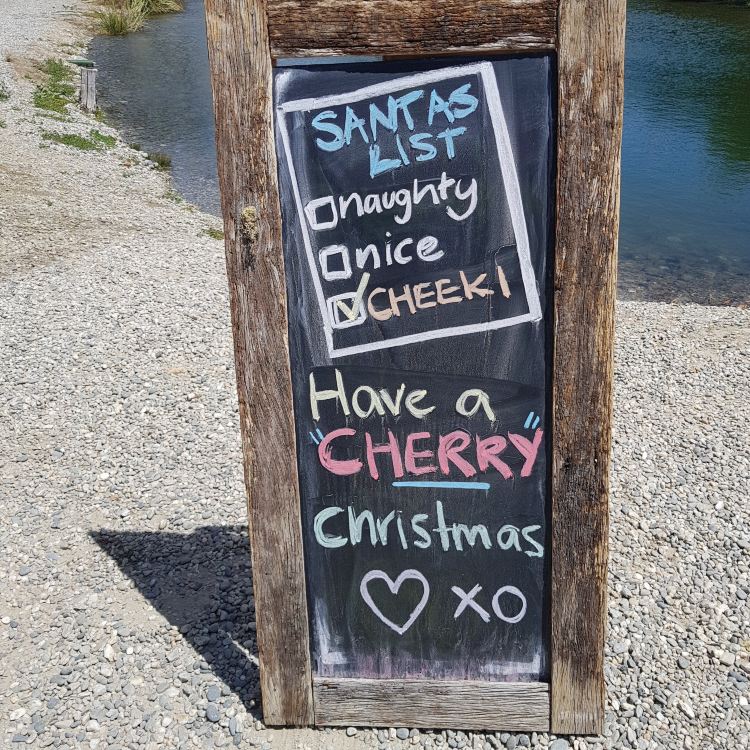 SANTAS
LIST
naughty
nice
CHEEKI
Have a
"CHERRY"
Christmas
XO